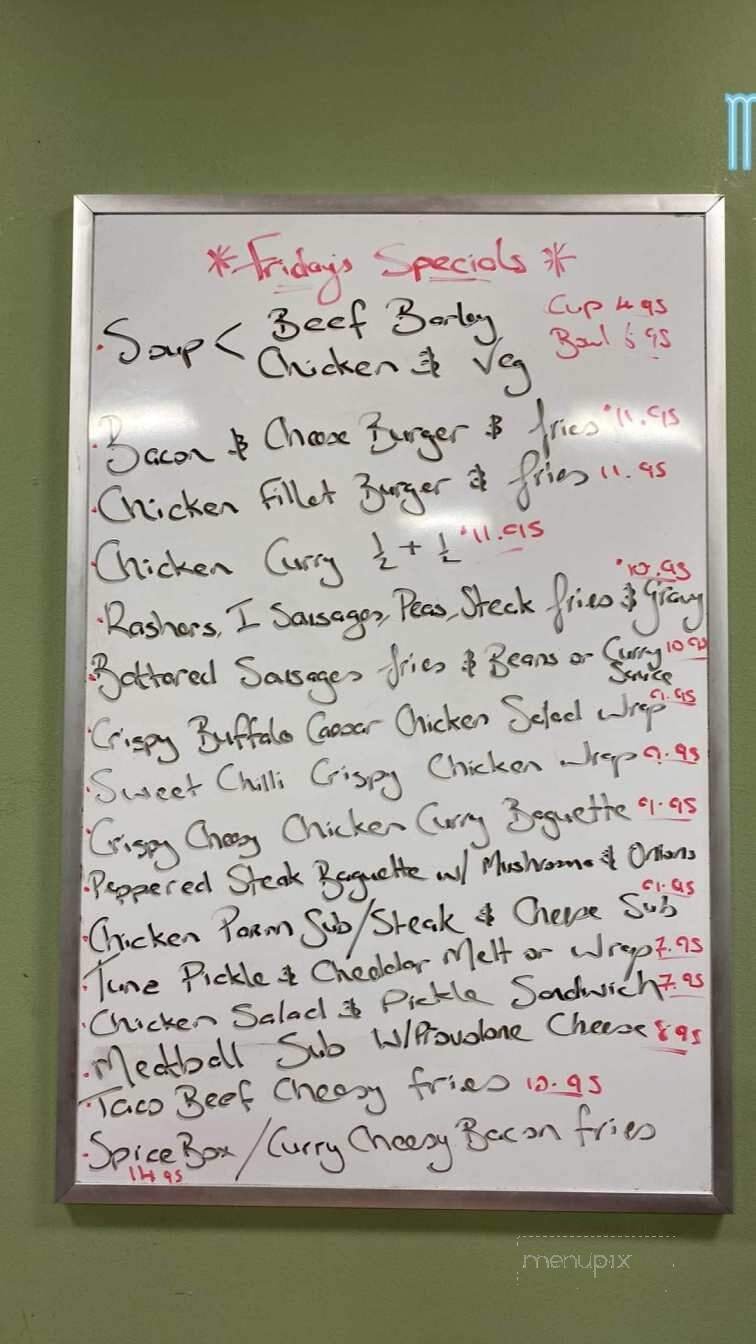 *Friday's Specials*
• Soup < Beef Barley Cup 4.95
Chicken & Veg Bowl 5.95
• Bacon & Cheese Burger & fries 11.95
• Chicken Fillet Burger & fries 11.95
• Chicken Curry ½ + ½ 11.95
• Rashers, I Sausages, Peas, Steck fries & Gravy 10.95
• Battared Sausages fries & Beans or Curry Sauce 10.95
• Crispy Buffalo Caesar Chicken Salad Wrap 9.95
• Sweet Chilli Crispy Chicken Wrap 9.95
• Crispy Cheesy Chicken Curry Baguette 9.95
• Peppered Steak Baguette w/ Mushrooms & Onions
• Chicken Parm Sub/Steak & Cheese Sub 9.95
• Tuna Pickle & Cheddar Melt or Wrap 7.95
• Chicken Salad & Pickle Sandwich 7.95
• Meatball Sub W/Provolone Cheese 8.95
• Taco Beef Cheesy fries 12.95
• Spice Box / Curry Cheesy Bacon fries
14.95
menupix